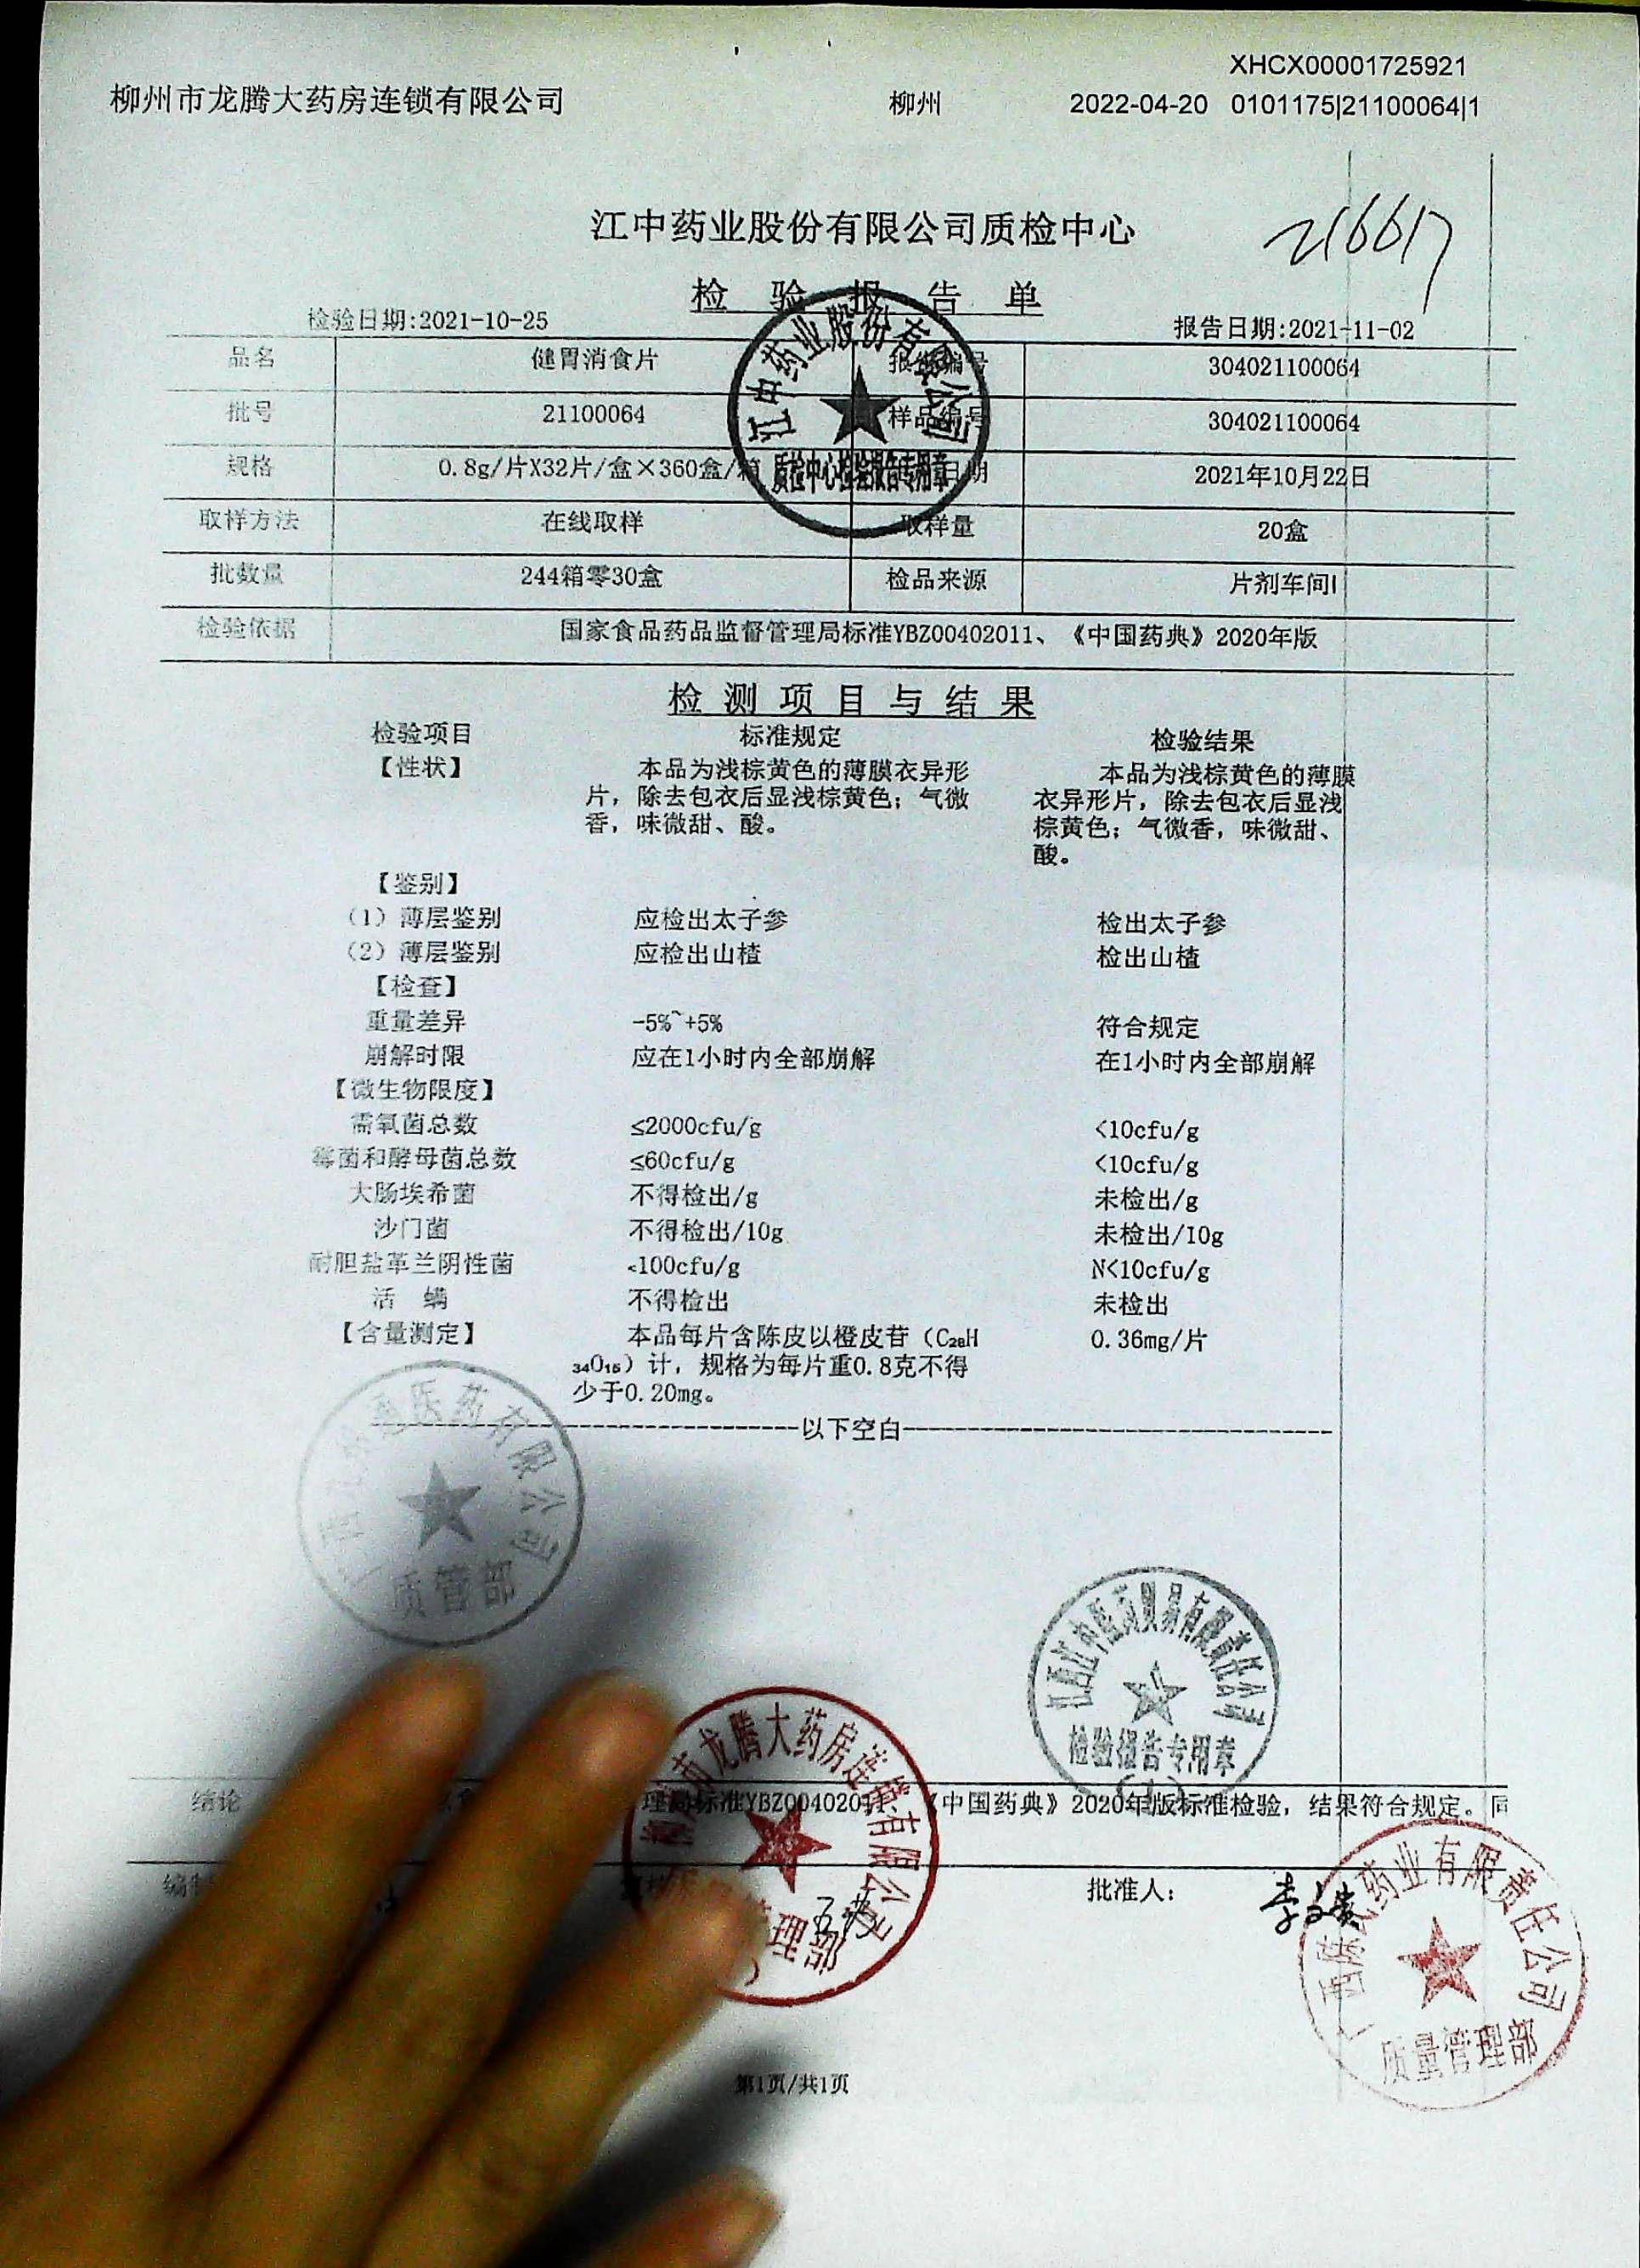 XHCX00001725921
柳州市龙腾大药房连锁有限公司 柳州 2022-04-20 0101175|21100064|1
216617
江中药业股份有限公司质检中心
检验报告单
检验日期:2021-10-25 报告日期:2021-11-02
品名 健胃消食片 报告编号 304021100064
批号 21100064 样品编号 304021100064
规格 0.8g/片X32片/盒×360盒/箱 日期 2021年10月22日
取样方法 在线取样 取样量 20盒
批数量 244箱零30盒 检品来源 片剂车间I
检验依据 国家食品药品监督管理局标准YBZ00402011、《中国药典》2020年版
江中药业股份有限公司
质检中心检验报告专用章
检测项目与结果
检验项目 标准规定 检验结果
【性状】 本品为浅棕黄色的薄膜衣异形 本品为浅棕黄色的薄膜
片，除去包衣后显浅棕黄色；气微 衣异形片，除去包衣后显浅
香，味微甜、酸。 棕黄色；气微香，味微甜、
酸。
【鉴别】
（1）薄层鉴别 应检出太子参 检出太子参
（2）薄层鉴别 应检出山楂 检出山楂
【检查】
重量差异 -5%~+5% 符合规定
崩解时限 应在1小时内全部崩解 在1小时内全部崩解
【微生物限度】
需氧菌总数 ≤2000cfu/g <10cfu/g
霉菌和酵母菌总数 ≤60cfu/g <10cfu/g
大肠埃希菌 不得检出/g 未检出/g
沙门菌 不得检出/10g 未检出/10g
耐胆盐革兰阴性菌 <100cfu/g N<10cfu/g
活 螨 不得检出 未检出
【含量测定】 本品每片含陈皮以橙皮苷（C₂₈H 0.36mg/片
₃₄O₁₅）计，规格为每片重0.8克不得
少于0.20mg。
以下空白
医药有限公司
质管部
江西江中医药贸易有限责任公司
检验报告专用章
(1)
结论 理局标准YBZ00402011、《中国药典》2020年版标准检验，结果符合规定。同
市龙腾大药房连锁有限公司
理部
编制 批准人：
药业有限责任公司
质量管理部
第1页/共1页